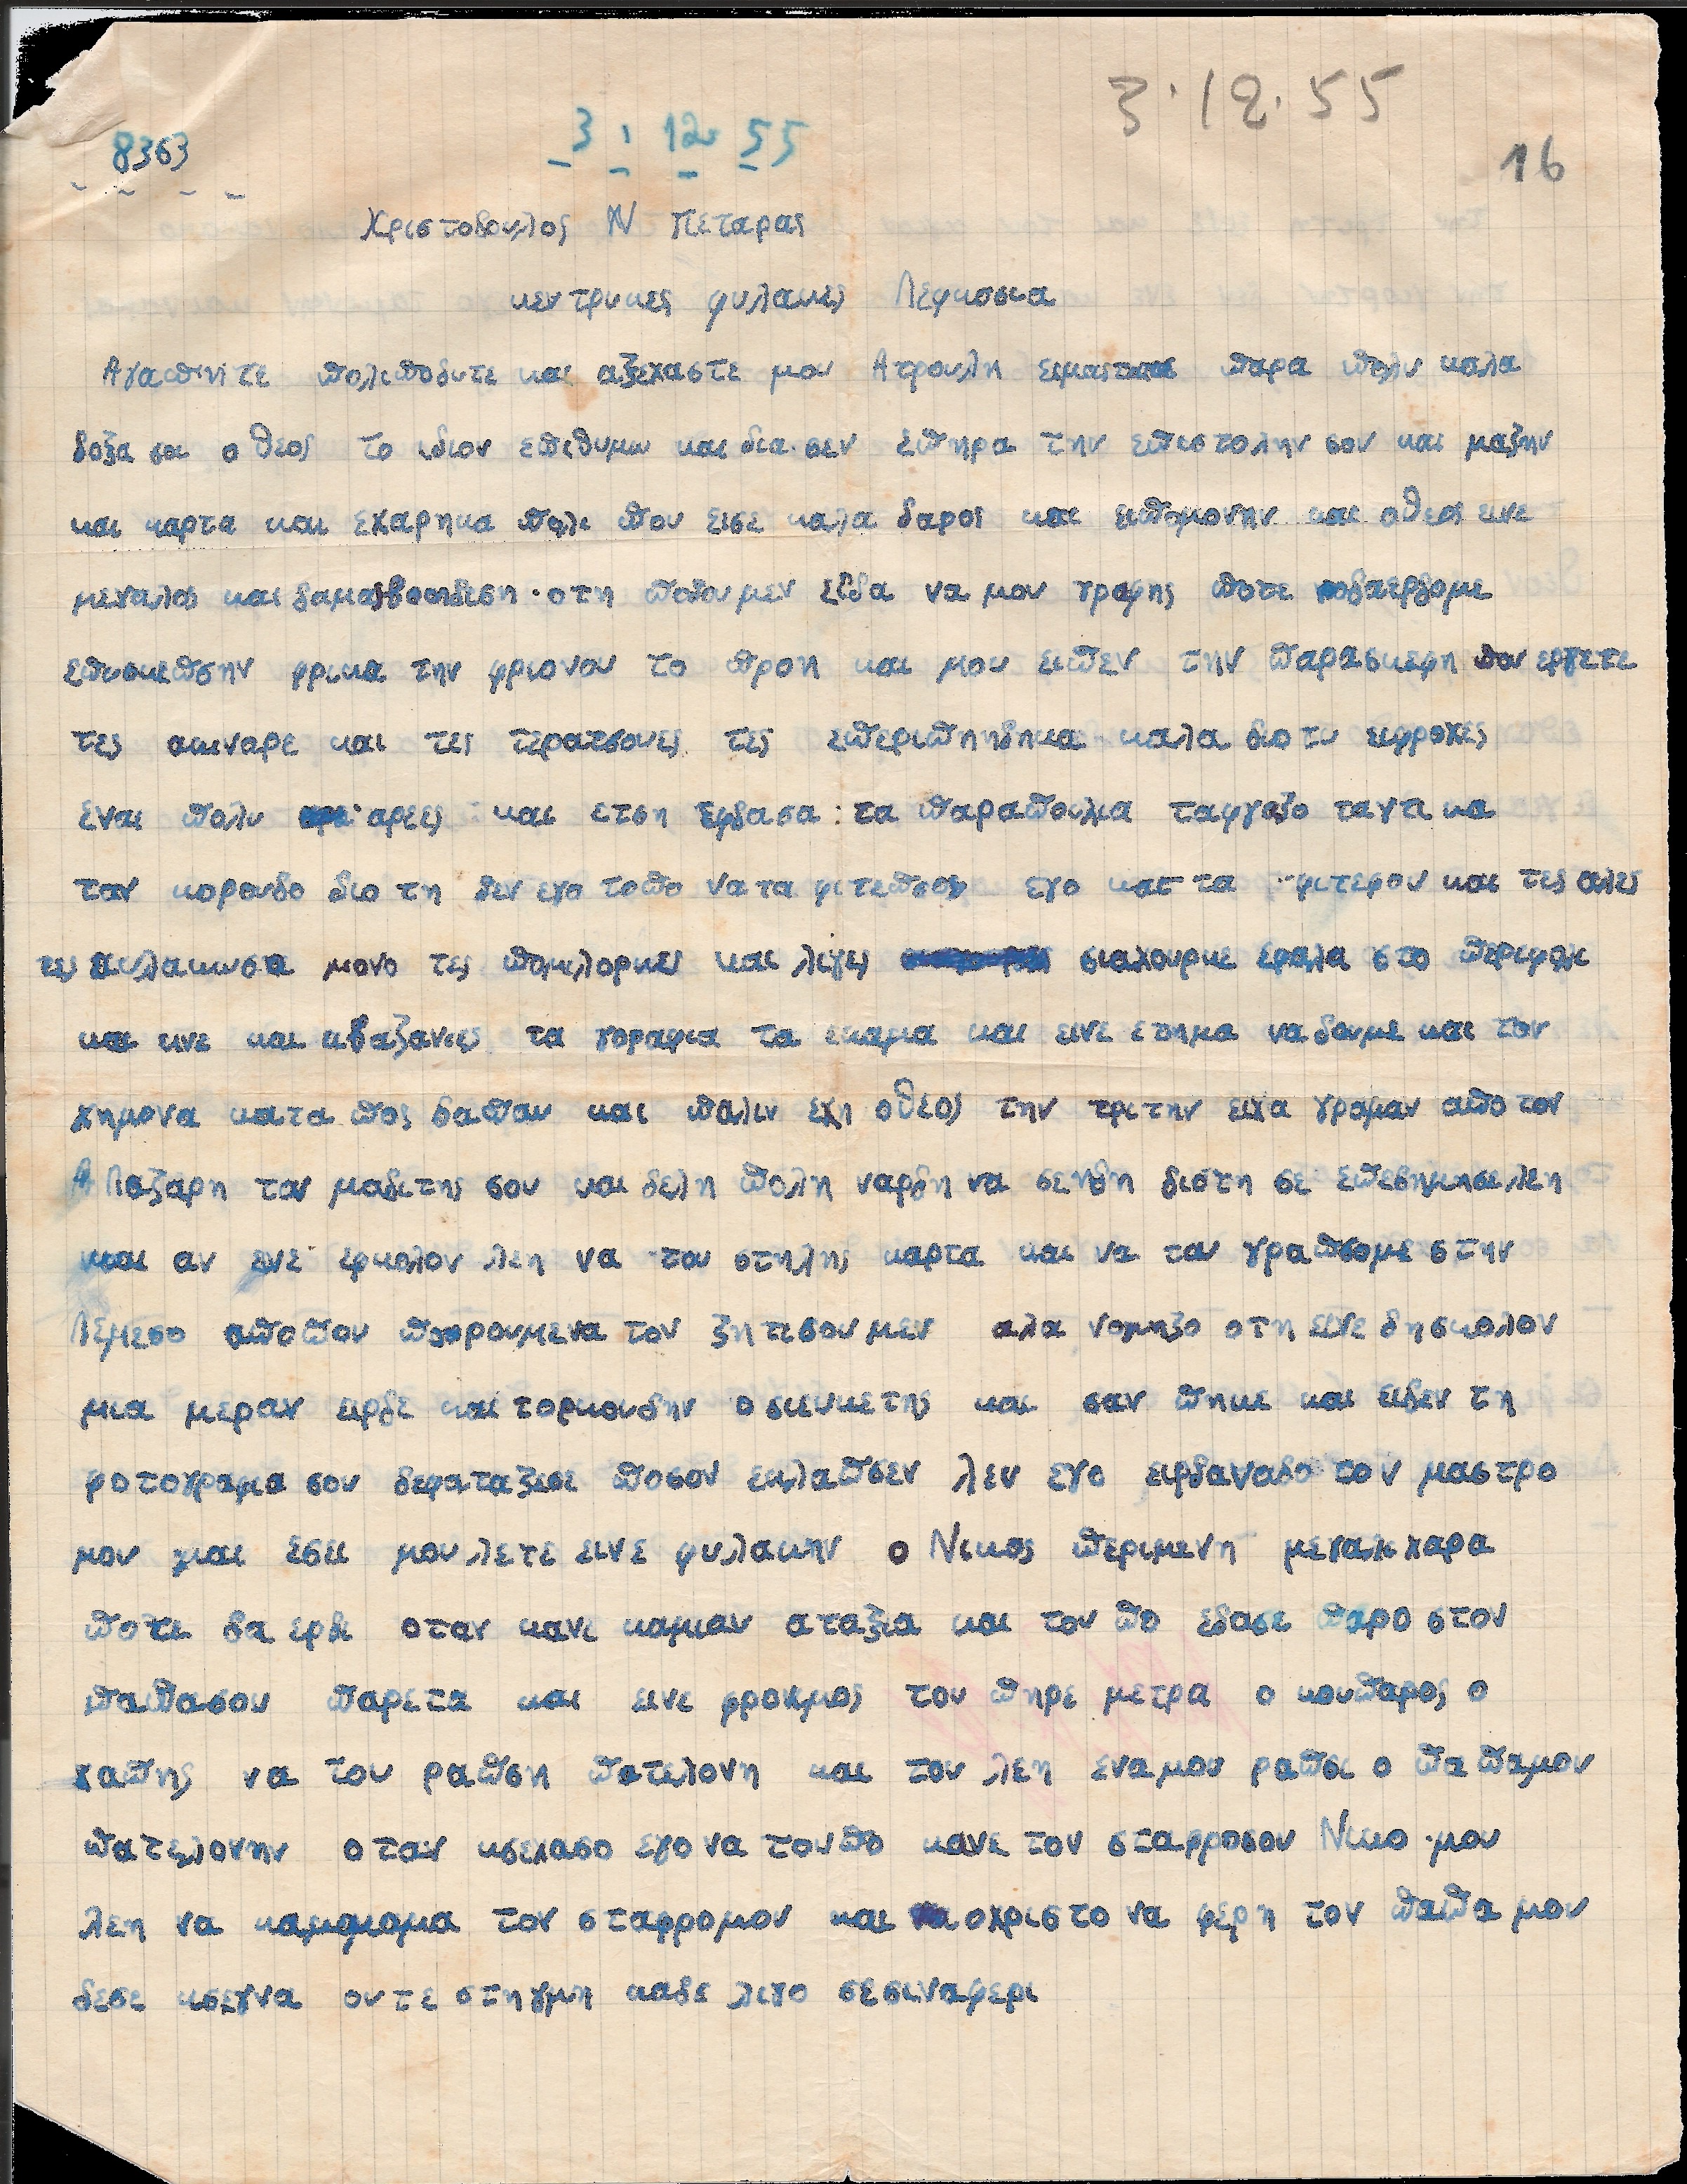 3·12·55
3 : 12 55
8363
16
Χριστοδουλος Ν Πεταρας
κεντρυκες φυλακες Λεφκοσια
Αγαπιιτε πολιποθυτε και αξεχαστε μου Ατρουλη ειμαστε παρα πολυ καλα
δοξα σοι ο θεος το ιδιον επιθυμω και δια σεν επηρα την επιστολην σου και μαζην
και καρτα και εχαρηκα πολι που εισε καλα δαρος και ειπομονην και οθεος εινε
μεγαλος και δαμας βοηδεση · οτη ποθουμεν ειδα να μου γραφης ποτε δαερδομε
επυσκεπσην φρικα την φριονου το προη και μου ειπεν την παρασκεφη που εργετε
τες ακιναρε και τες τερατσουες τες επεριπηηδηκα καλα διοτυ εφροχες
εναι πολυ αρεες και ετση εφδασα : τα παραπουλια ταφγαζο ταγτικα
τον κορουδο διοτη δεν εγο τοπο να τα φιτεπσο εγο κατ τα φιτεφου και τες αλες
τες αυλακωσα μονο τες πομιλορκες και λιγες σιαχουρκε εφαλα στο περιφολι
και κινε και αβαζανιες τα γοραφια τα εκαμα και εινε ετημα να δουμε και τον
χημονα κατα πος δαπαν και παλιν εχη οθεος την τριτην ειχα γραμαν απο τον
Α Λαζαρη τον μαδιτης σου και δελη πολη ναρδη να σενδη διστη σε επεθημησε λεη
και αν ενε εφκολον λεη να του στηλης καρτα και να του γραπσομε στην
Λεμεσο αποπου πορουμενα τον ζητεσουμεν αλα νομηζο οτη εινε δησκολον
μια μεραν ειρδε και τορκουδην ο σιενκετης και σαν πηκε και ειδεν τη
φοτογραφια σου δεφαταξεσε ποσον εκλαπσεν λεν εγο ειρδαναδο τον μαστρο
μου και εσει μου λετε εινε φυλακην ο Νικος περιμενη μεγαλι χαρα
ποτε δα ερδε οταν κανε καμιαν αταξια και τον πο εδασε παρο στον
παπασου παρετα και εινε φρονιμος του πηρε μετρα ο κουπαρος ο
χαπης να του ραπση πατελονη και του λεη εναμου ραπσε ο παπαμου
πατελονην οταν κσεχασο εγο να τουπο κανε τον σταφροσου Νικο · μου
λεη να καμομομα τον σταφρομου και οχριστο να φερη τον παπα μου
δεσε κσεγνα ουτε στηγμη καδε λιγο σεσιναφερι